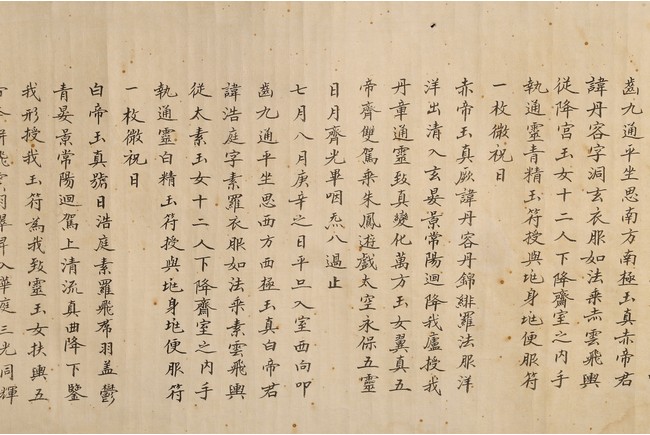 齒九通平坐思南方南極玉真赤帝君
諱丹容字洞玄衣服如法乘赤雲飛輿
從降宮玉女十二人下降齋室之内手
執通靈青精玉符授與兆身兆便服符
一枚微祝曰
赤帝玉真厥諱丹容丹錦緋羅法服洋
洋出清入玄晏景常陽迴降我廬授我
丹章通靈致真變化萬方玉女翼真五
帝齊雙駕乘朱鳳遊戲太空永保五靈
日月齊光畢咽炁八過止
七月八月庚辛之日平旦入室西向叩
齒九通平坐思西方西極玉真白帝君
諱浩庭字素羅衣服如法乘素雲飛輿
從太素玉女十二人下降齋室之内手
執通靈白精玉符授與兆身兆便服符
一枚微祝曰
白帝玉真號曰浩庭素羅飛帬羽盖鬱
青晏景常陽迴駕上清流真曲降下鑒
我形授我玉符為我致靈玉女扶輿五
帝齊軿飛雲羽翠昇入華庭三光同輝